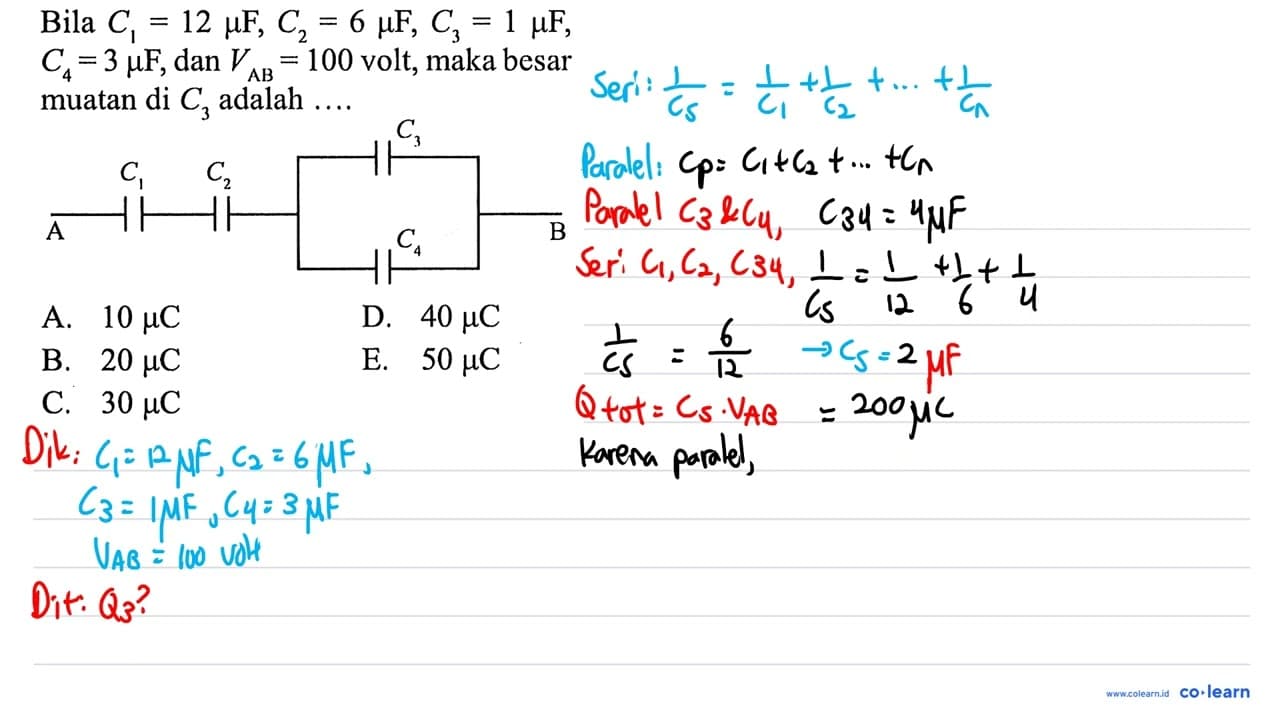 Bila C₁ = 12 μF, C₂ = 6 μF, C₃ = 1 μF,
C₄ = 3 μF, dan V_AB = 100 volt, maka besar
muatan di C₃ adalah ....
C₃
C₁ C₂
A B
C₄
A. 10 μC D. 40 μC
B. 20 μC E. 50 μC
C. 30 μC
Dik: C₁ = 12 μF, C₂ = 6 μF,
C3 = 1 μF, C4 = 3 μF
VAB = 100 volt
Dit: Q3?
Seri: 1/Cs = 1/C1 + 1/C2 + ... + 1/Cn
Paralel: Cp = C1 + C2 + ... + Cn
Paralel C3 & C4, C34 = 4 μF
Seri C1, C2, C34, 1/Cs = 1/12 + 1/6 + 1/4
1/Cs = 6/12 → Cs = 2 μF
Qtot = Cs . VAB = 200 μC
Karena paralel,
www.colearn.id co·learn